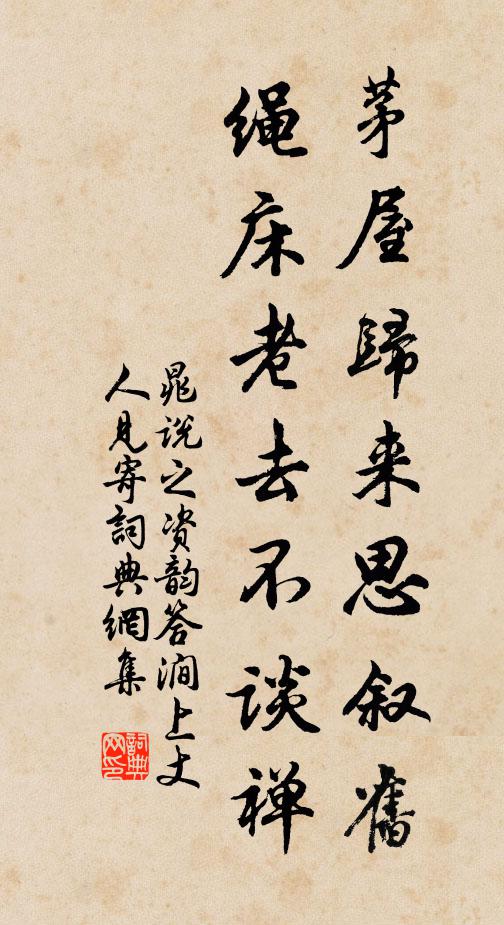 茅屋歸来思叙舊
绳床老去不谈禅
晁说之资韵答涧上丈
人見寄詞典網集
詞典网印